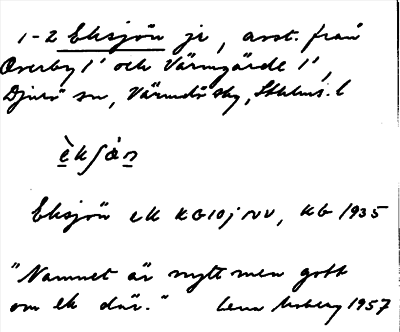 1-2 Eksjön je, avst. från
Överby 1' och Värmgärde 1',
Djurö sn, Värmdö skg, Sthlms. l
èkʃön
Eksjön ek KB10j NV, KB 1935
"Namnet är nytt men gott
om ek där." Lena Moberg 1957